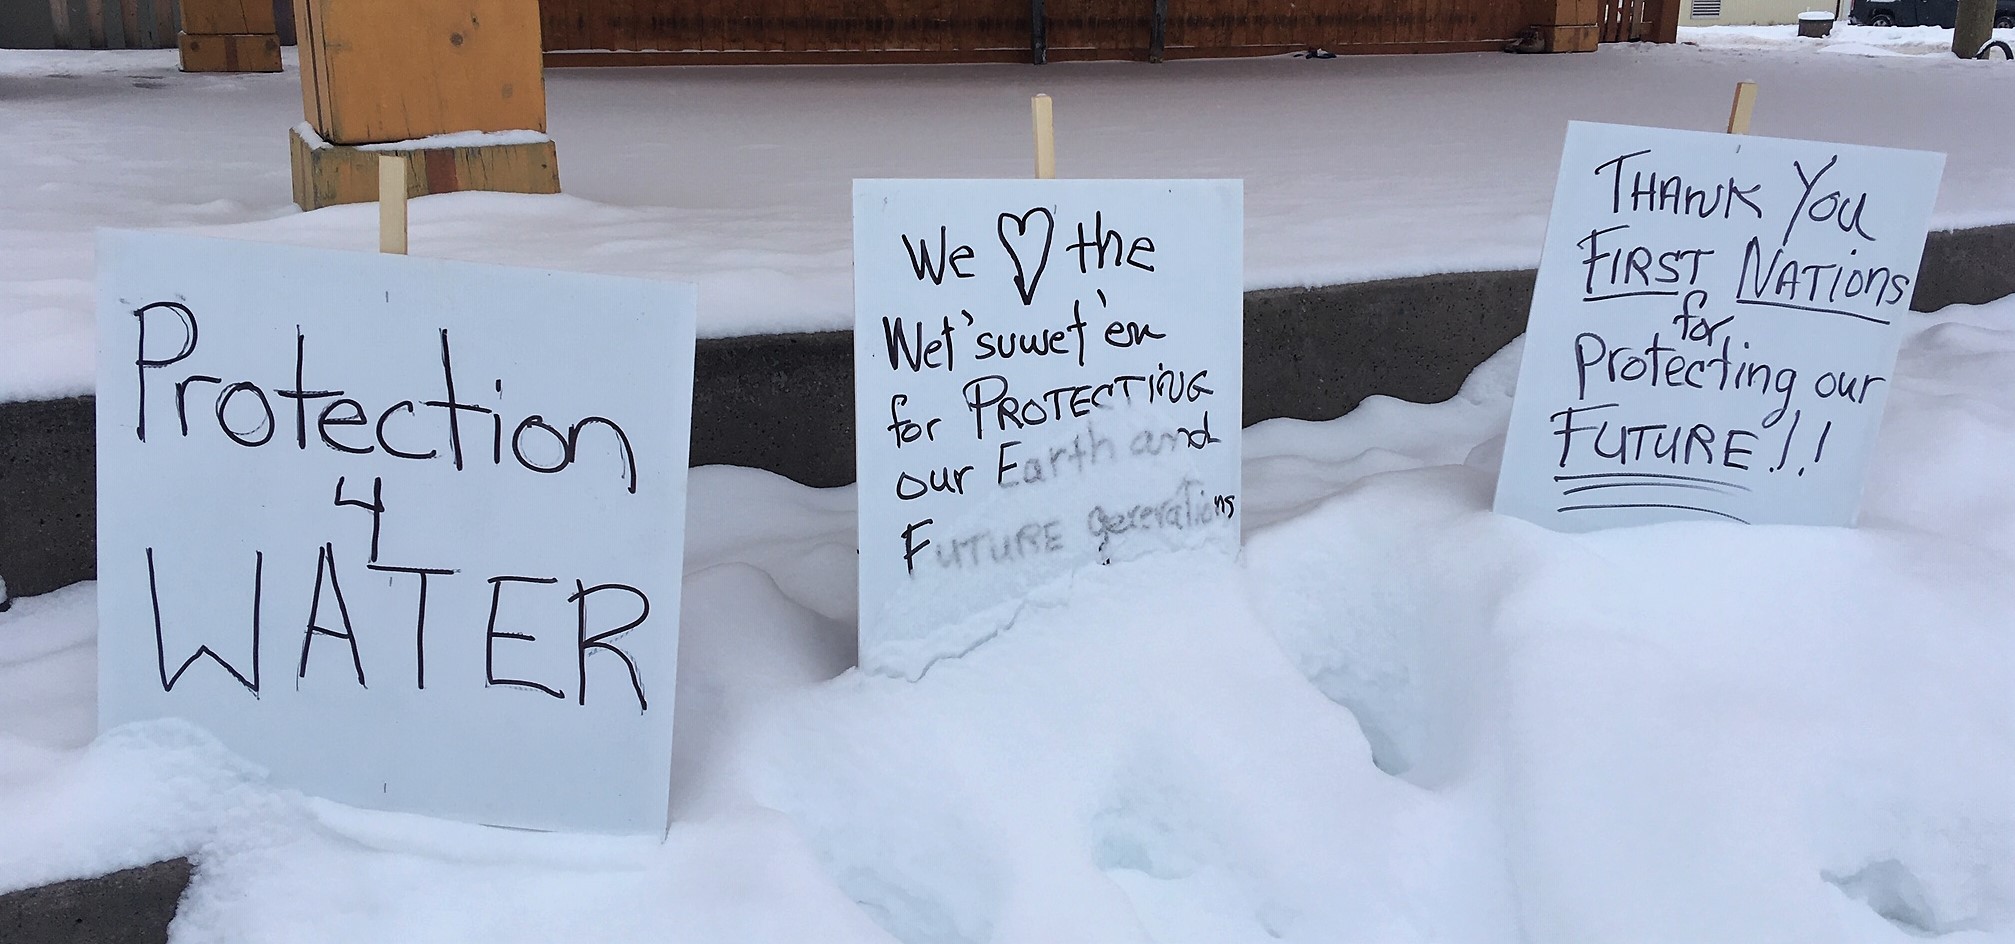 Protection
4
WATER
We ♡ the
Wet'suwet'en
for PROTECTING
our Earth and
FUTURE generations
THANK YOU
FIRST NATIONS
for
Protecting our
FUTURE!!